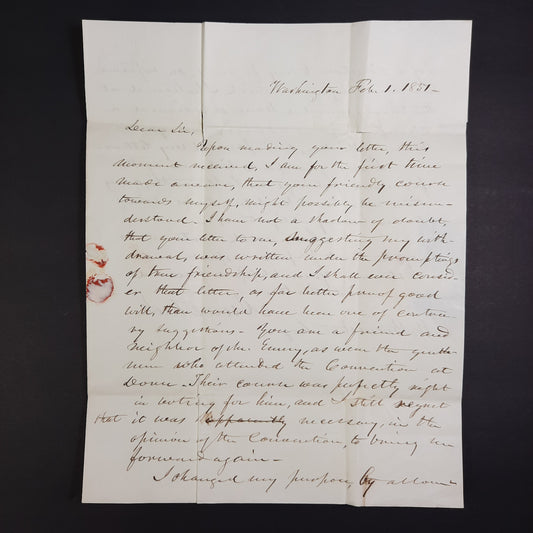 Washington Feb. 1. 1851-
Dear Sir,
Upon reading your letter, this
moment received, I am for the first time
made aware, that your friendly course
towards myself, might possibly be misun-
derstood. I have not a shadow of doubt,
that your letter to me, suggesting my with-
drawal, was written under the promptings
of true friendship, and I shall ever consid-
er that letter, as far better proof of good
will, than would have been one of contra-
ry suggestions- You are a friend and
neighbor of Mr. Emery, as were the gentle-
men who attended the Convention at
Dover- Their course was perfectly right
in working for him, and I still regret
that it was apparently necessary, in the
opinion of the Convention, to bring me
forward again-
I changed my purpose, by allow-